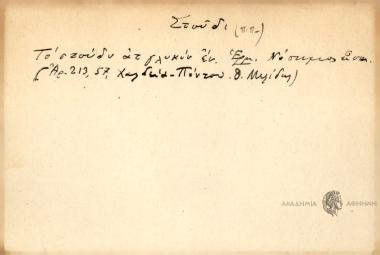 Στούδι (π.π.-)
Το στούδιν ἀτ γλυκύν ἔν. Ἑρμ. Νόστιμος εἶναι.
(Ἀρ. 213, 57, Χαλδεία-Πόντου. Θ. Μελίδης)
ΑΚΑΔΗΜΙΑ ΑΘΗΝΩΝ